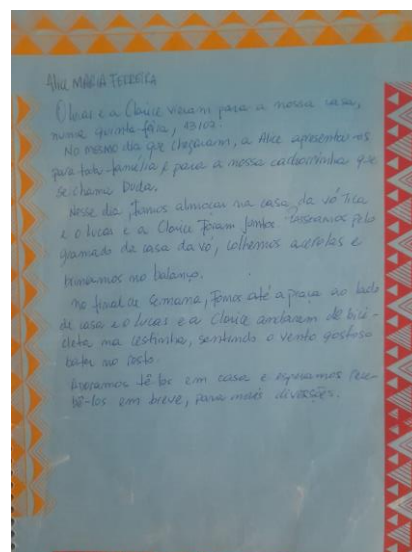 Alice MARIA FERREIRA
O Lucas e a Clarice vieram para a nossa casa,
numa quinta-feira, 13/07.
No mesmo dia que chegaram, a Alice apresentou-os
para toda família e para a nossa cachorrinha que
se chama Duda.
Nesse dia, fomos almoçar na casa da vó Tica
e o Lucas e a Clarice foram juntos. Passeamos pelo
gramado da casa da vó, colhemos acerolas e
brincamos no balanço.
No final de semana, fomos até a praça ao lado
de casa e o Lucas e a Clarice andaram de bici-
cleta na cestinha, sentindo o vento gostoso
bater no rosto.
Adoramos tê-los em casa e esperamos rece-
bê-los em breve, para mais diversões.